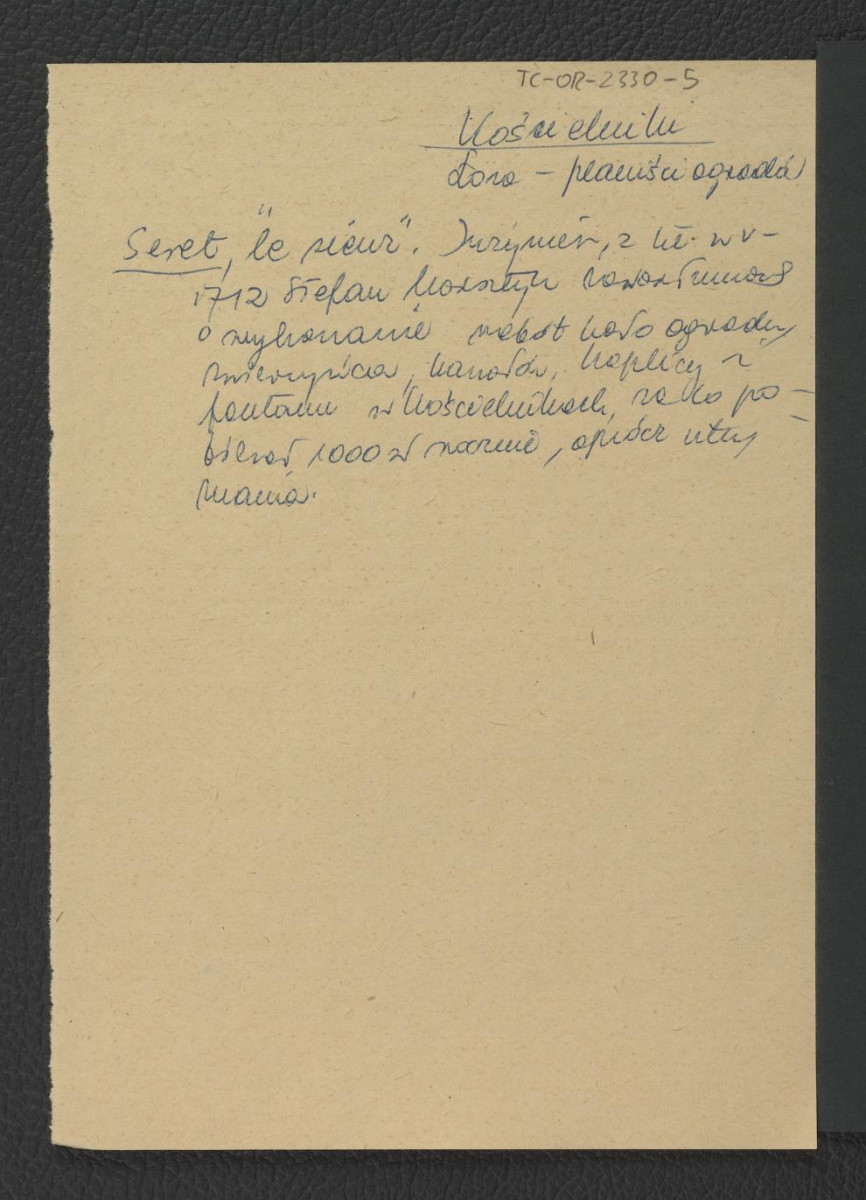 TC-OR-2330-5
Kościelniki
Łoza – planiści ogrodów
Seret, "le sieur". Inżynier, z kt. w r.
1712 Stefan Morsztyn zawarł umowę
o wykonanie robót koło ogrodu,
zwierzyńca, kanałów, kaplicy i
fontann w Kościelnikach, za co po-
bierał 1000 zł rocznie, oprócz utrzy
mania.